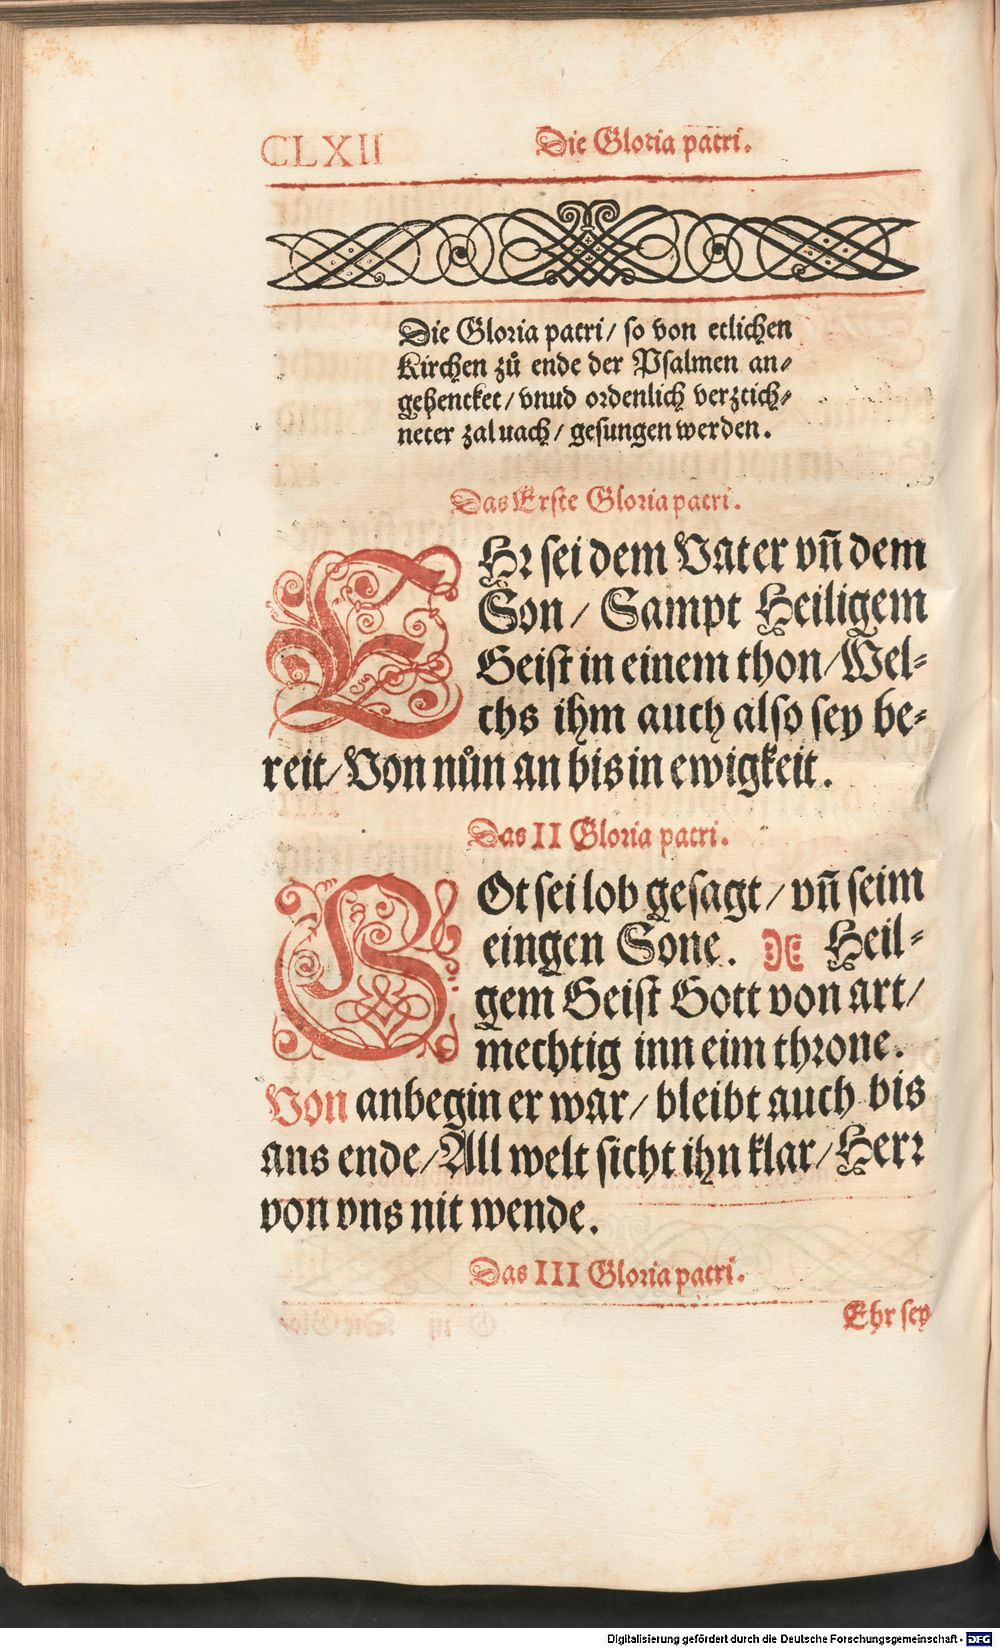 CLXII Die Gloria patri.
Die Gloria patri/ so von etlichen
Kirchen zů ende der Psalmen an⸗
gehencket/ vnud ordenlich verzeich⸗
neter zal uach/ gesungen werden.
Das Erste Gloria patri.
EHr sei dem Vater vñ dem
Son/ Sampt Heiligem
Geist in einem thon/ Wel⸗
chs ihm auch also sey be⸗
reit/ Von nůn an bis in ewigkeit.
Das II Gloria patri.
GOt sei lob gesagt/ vñ seim
eingen Sone. Heil⸗
gem Geist Gott von art/
mechtig inn eim throne.
Von anbegin er war/ bleibt auch bis
ans ende/ All welt sicht ihn klar/ Herr
von vns nit wende.
Das III Gloria patri.
Ehr sey
Digitalisierung gefördert durch die Deutsche Forschungsgemeinschaft - DFG